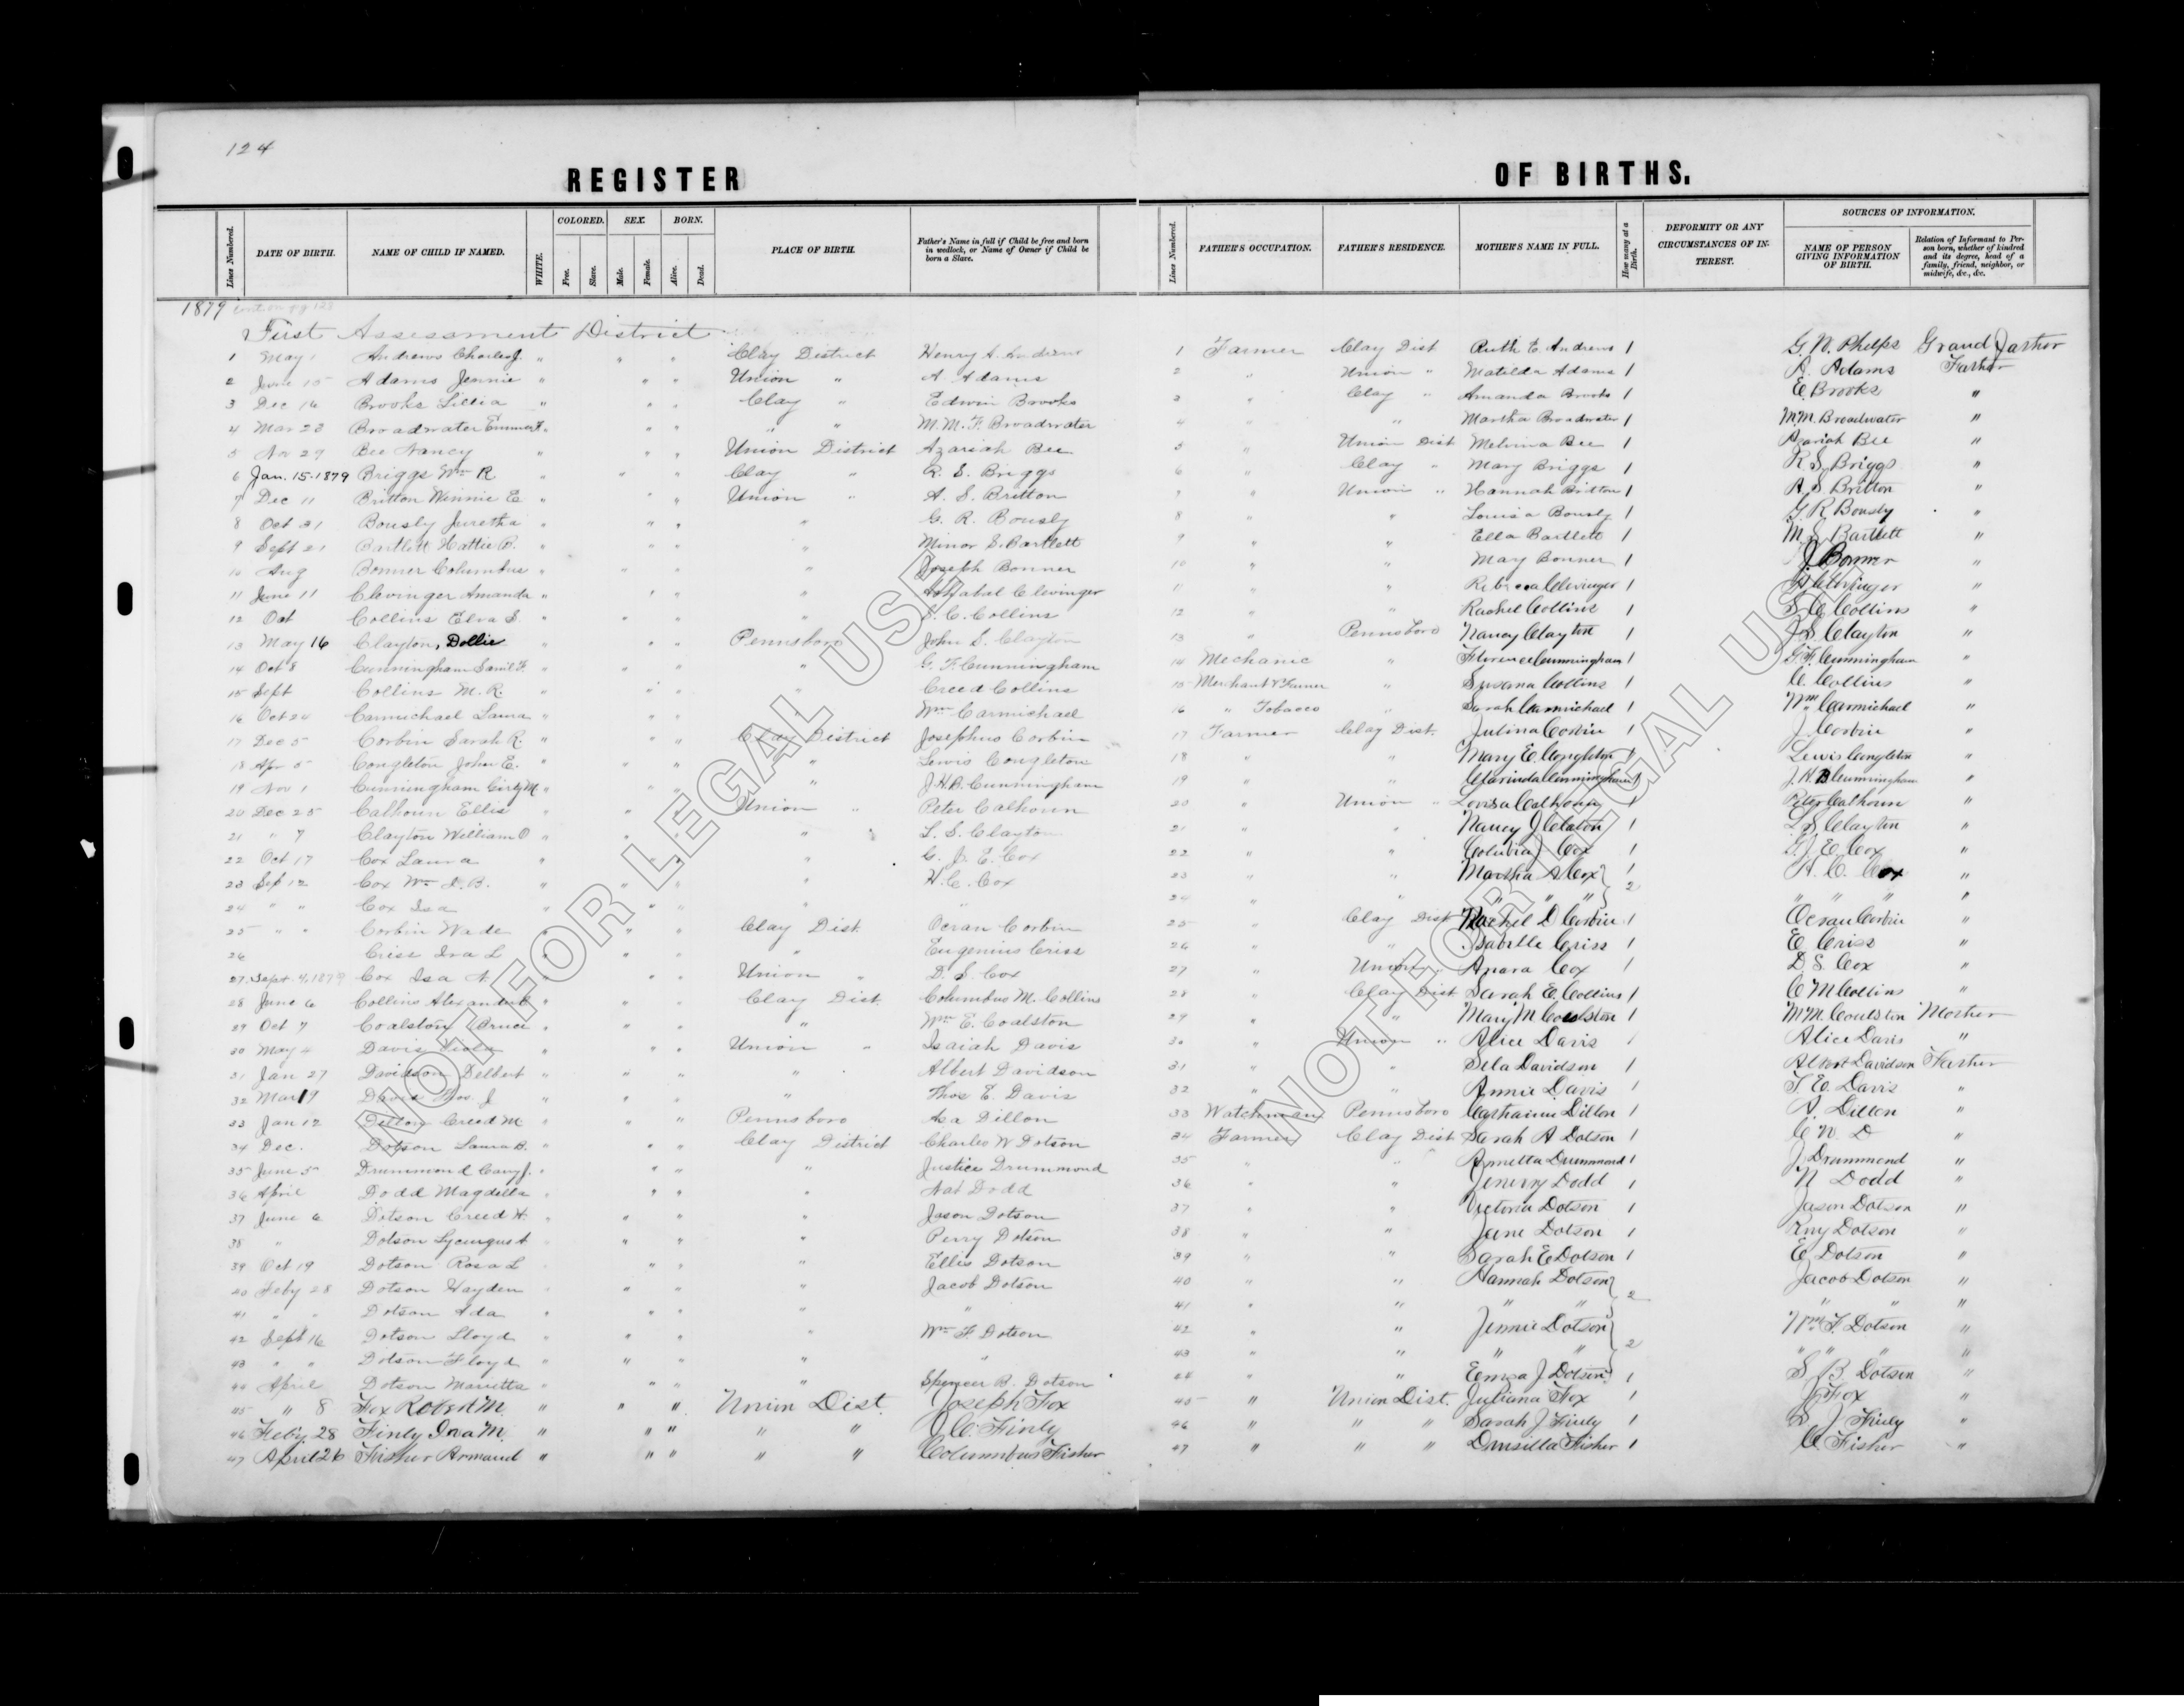 124
REGISTER OF BIRTHS.
Lines Numbered. DATE OF BIRTH. NAME OF CHILD IF NAMED. WHITE. COLORED. Free. Slave. SEX. Male. Female. BORN. Alive. Dead. PLACE OF BIRTH. Father's Name in full if Child be free and born in wedlock, or Name of Owner if Child be born a Slave. Lines Numbered. FATHER'S OCCUPATION. FATHER'S RESIDENCE. MOTHER'S NAME IN FULL. How many at a Birth. DEFORMITY OR ANY CIRCUMSTANCES OF INTEREST. SOURCES OF INFORMATION. NAME OF PERSON GIVING INFORMATION OF BIRTH. Relation of Informant to Person born, whether of kindred and its degree, head of a family, friend, neighbor, or midwife, &c., &c.
1879
First Assessment District
1 May 1 Andrews Charles J. " " " Clay District Henry A. Andrews 1 Farmer Clay Dist Ruth E. Andrews 1 G. W. Phelps Grand Father
2 June 15 Adams Jennie " " " Union " A. Adams 2 " Union " Matilda Adams 1 A. Adams Father
3 Dec 16 Brooks Lillia " " " Clay " Edwin Brooks 3 " Clay " Amanda Brooks 1 E. Brooks "
4 Mar 23 Broadwater " " " " " M. M. F. Broadwater 4 " " Martha Broadwater 1 M. M. Broadwater "
5 Nov 27 Bee Nancy " " " Union District Azariah Bee 5 " Union Dist Melvina Bee 1 Azariah Bee "
6 Jan. 15. 1879 Briggs Wm R " " " Clay " R. S. Briggs 6 " Clay " Mary Briggs 1 R. S. Briggs "
7 Dec 11 Britton Winnie E " " " Union " A. S. Britton 7 " Union " Hannah Britton 1 A. S. Britton "
8 Oct 21 Bously Juretha " " " " G. R. Bously 8 " " Louisa Bously 1 G. R. Bously "
9 Sept 21 Bartlett Hattie B. " " " " Minor S. Bartlett 9 " " Ella Bartlett 1 M. S. Bartlett "
10 Aug Bonner Columbus " " " " Joseph Bonner 10 " " Mary Bonner 1 J. Bonner "
11 June 11 Clevinger Amanda " " " " Clevinger 11 " " Rebecca Clevinger 1 Clevinger "
12 Oct Collins Elva S. " " " " S. C. Collins 12 " " Rachel Collins 1 S. C. Collins "
13 May 16 Clayton, Dollie " " " Pennsboro John S. Clayton 13 " Pennsboro Nancy Clayton 1 J. S. Clayton "
14 Oct 8 Cunningham F. " " " " G. F. Cunningham 14 Mechanic " Florence Cunningham 1 G. F. Cunningham "
15 Sept Collins M. R. " " " " Creed Collins 15 Merchant & Farmer " Susana Collins 1 C. Collins "
16 Oct 24 Carmichael Laura " " " " Wm Carmichael 16 " Tobacco " Sarah Carmichael 1 Wm Carmichael "
17 Dec 5 Corbin Sarah R. " " " Clay District Josephus Corbin 17 Farmer Clay Dist. Julina Corbin 1 J. Corbin "
18 Apr 5 Congleton John E. " " " " Lewis Congleton 18 " " Mary E. Congleton 1 Lewis Congleton "
19 Nov 1 Cunningham M " " " " J. H. B. Cunningham 19 " " Clarinda Cunningham 1 J. H. B Cunningham "
20 Dec 25 Calhoun Ellis " " " Union " Peter Calhoun 20 " Union " Lovisa Calhoun 1 Peter Calhoun "
21 " 7 Clayton William O " " " " L. S. Clayton 21 " " Nancy J Claton 1 L. S. Clayton "
22 Oct 17 Cox Laura " " " " G. J. E. Cox 22 " " J Cox 1 G. J. E. Cox "
23 Sep 12 Cox Wm D. B. " " " " H. C. Cox 23 " " Martha A Cox 1 H. C. Cox "
24 " " Cox Isa " " " " " 24 " " " " " 2 " " " "
25 " " Corbin Wade " " " Clay Dist Ocran Corbin 25 " Clay Dist Rachel D Corbin 1 Ocran Corbin "
26 Criss Iva L " " " " Eugenius Criss 26 " " Isabelle Criss 1 E Criss "
27 Sept 4, 1879 Cox Isa A. " " " Union " D. S. Cox 27 " Union " Anara Cox 1 D. S. Cox "
28 June 6 Collins Alexander " " " Clay Dist. Columbus M. Collins 28 " Clay Dist Sarah E. Collins 1 C M Collins "
29 Oct 7 Coalston Bruce " " " " Wm E. Coalston 29 " " Mary M Coalston 1 M. M. Coulston Mother
30 May 4 Davis Viola " " " Union " Isaiah Davis 30 " Union " Alice Davis 1 Alice Davis "
31 Jan 27 Davidson Delbert " " " " Albert Davidson 31 " " Sela Davidson 1 Albert Davidson Father
32 Mar 19 Davis Thos. J " " " " Thos E. Davis 32 " " Annie Davis 1 T. E. Davis "
33 Jan 12 Dillon Creed M. " " " Pennsboro Asa Dillon 33 Watchman Pennsboro Catharine Dillon 1 A. Dillon "
34 Dec. Dotson Laura B. " " " Clay District Charles W Dotson 34 Farmer Clay Dist Sarah A Dotson 1 C. W. D "
35 June 5 Drummond J. " " " " Justice Drummond 35 " " Armetta Drummond 1 J. Drummond "
36 April Dodd Magdella " " " " Nat Dodd 36 " " Dodd 1 N Dodd "
37 June 6 Dotson Creed H. " " " " Jason Dotson 37 " " Victoria Dotson 1 Jason Dotson "
38 " Dotson Lycurgus A " " " " Perry Dotson 38 " " Jane Dotson 1 Dotson "
39 Oct 19 Dotson Rosa L " " " " Ellis Dotson 39 " " Sarah E Dotson 1 E. Dotson "
40 Feby 28 Dotson Hayden " " " " Jacob Dotson 40 " " Hannah Dotson Jacob Dotson "
41 " " Dotson Ada " " " " " 41 " " " " 2 " " "
42 Sept 16 Dotson Lloyd " " " " Wm F. Dotson 42 " " Jennie Dotson Wm F. Dotson "
43 " " Dotson Floyd " " " " " 43 " " " " 2 " " " "
44 April Dotson Marietta " " " " Spencer B. Dotson 44 " " J. Dotson 1 S. B. Dotson "
45 " 8 Fox Robert M. " " " Union Dist. Joseph Fox 45 " Union Dist. Juliana Fox 1 J. Fox "
46 Feby 28 Finly Ina M. " " " " " J. C. Finly 46 " " " Sarah J. Finly 1 S J Finly "
47 April 26 Fisher Armand " " " " " Columbus Fisher 47 " " " Drusilla Fisher 1 C Fisher "
NOT FOR LEGAL USE
NOT FOR LEGAL USE